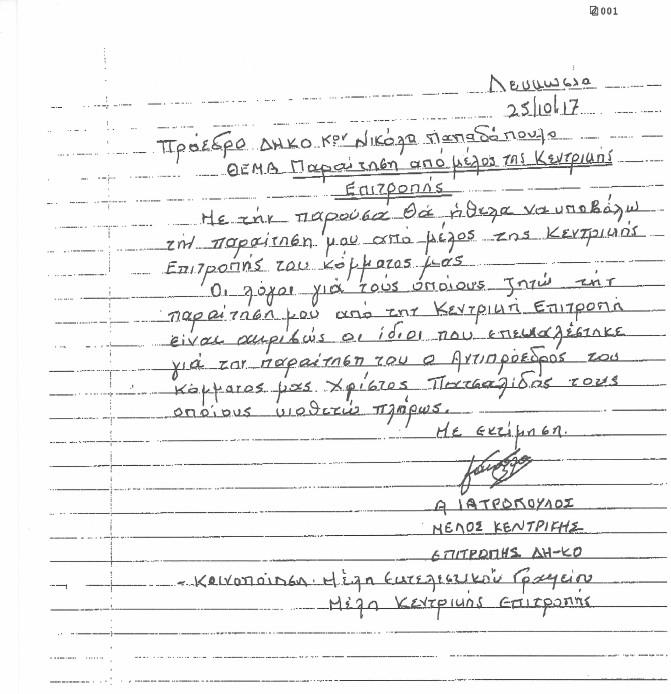 001
Λευκωσία
25/10/17
Πρόεδρο ΔΗΚΟ Κον Νικόλα Παπαδόπουλο
ΘΕΜΑ Παραίτηση από μέλος της Κεντρικής
Επιτροπής
Με την παρούσα θά ήθελα να υποβάλω
την παραίτηση μου από μέλος της Κεντρικής
Επιτροπής του κόμματος μας
Οι λόγοι γιά τούς οποίους ζητώ τήν
παραίτηση μου από την Κεντρική Επιτροπή
είναι ακριβώς οι ίδιοι που επεκαλέστηκε
γιά την παραίτηση του ο Αντιπρόεδρος του
Κόμματος μας Χρίστος Πατσαλίδης τους
οποίους υιοθετώ πλήρως.
Με εκτίμηση.
Α ΙΑΤΡΟΠΟΥΛΟΣ
ΜΕΛΟΣ ΚΕΝΤΡΙΚΗΣ
ΕΠΙΤΡΟΠΗΣ ΔΗ-ΚΟ
- Κοινοποίηση. Μέλη Εκτελεστικού Γραφείου
Μέλη Κεντρικής Επιτροπής